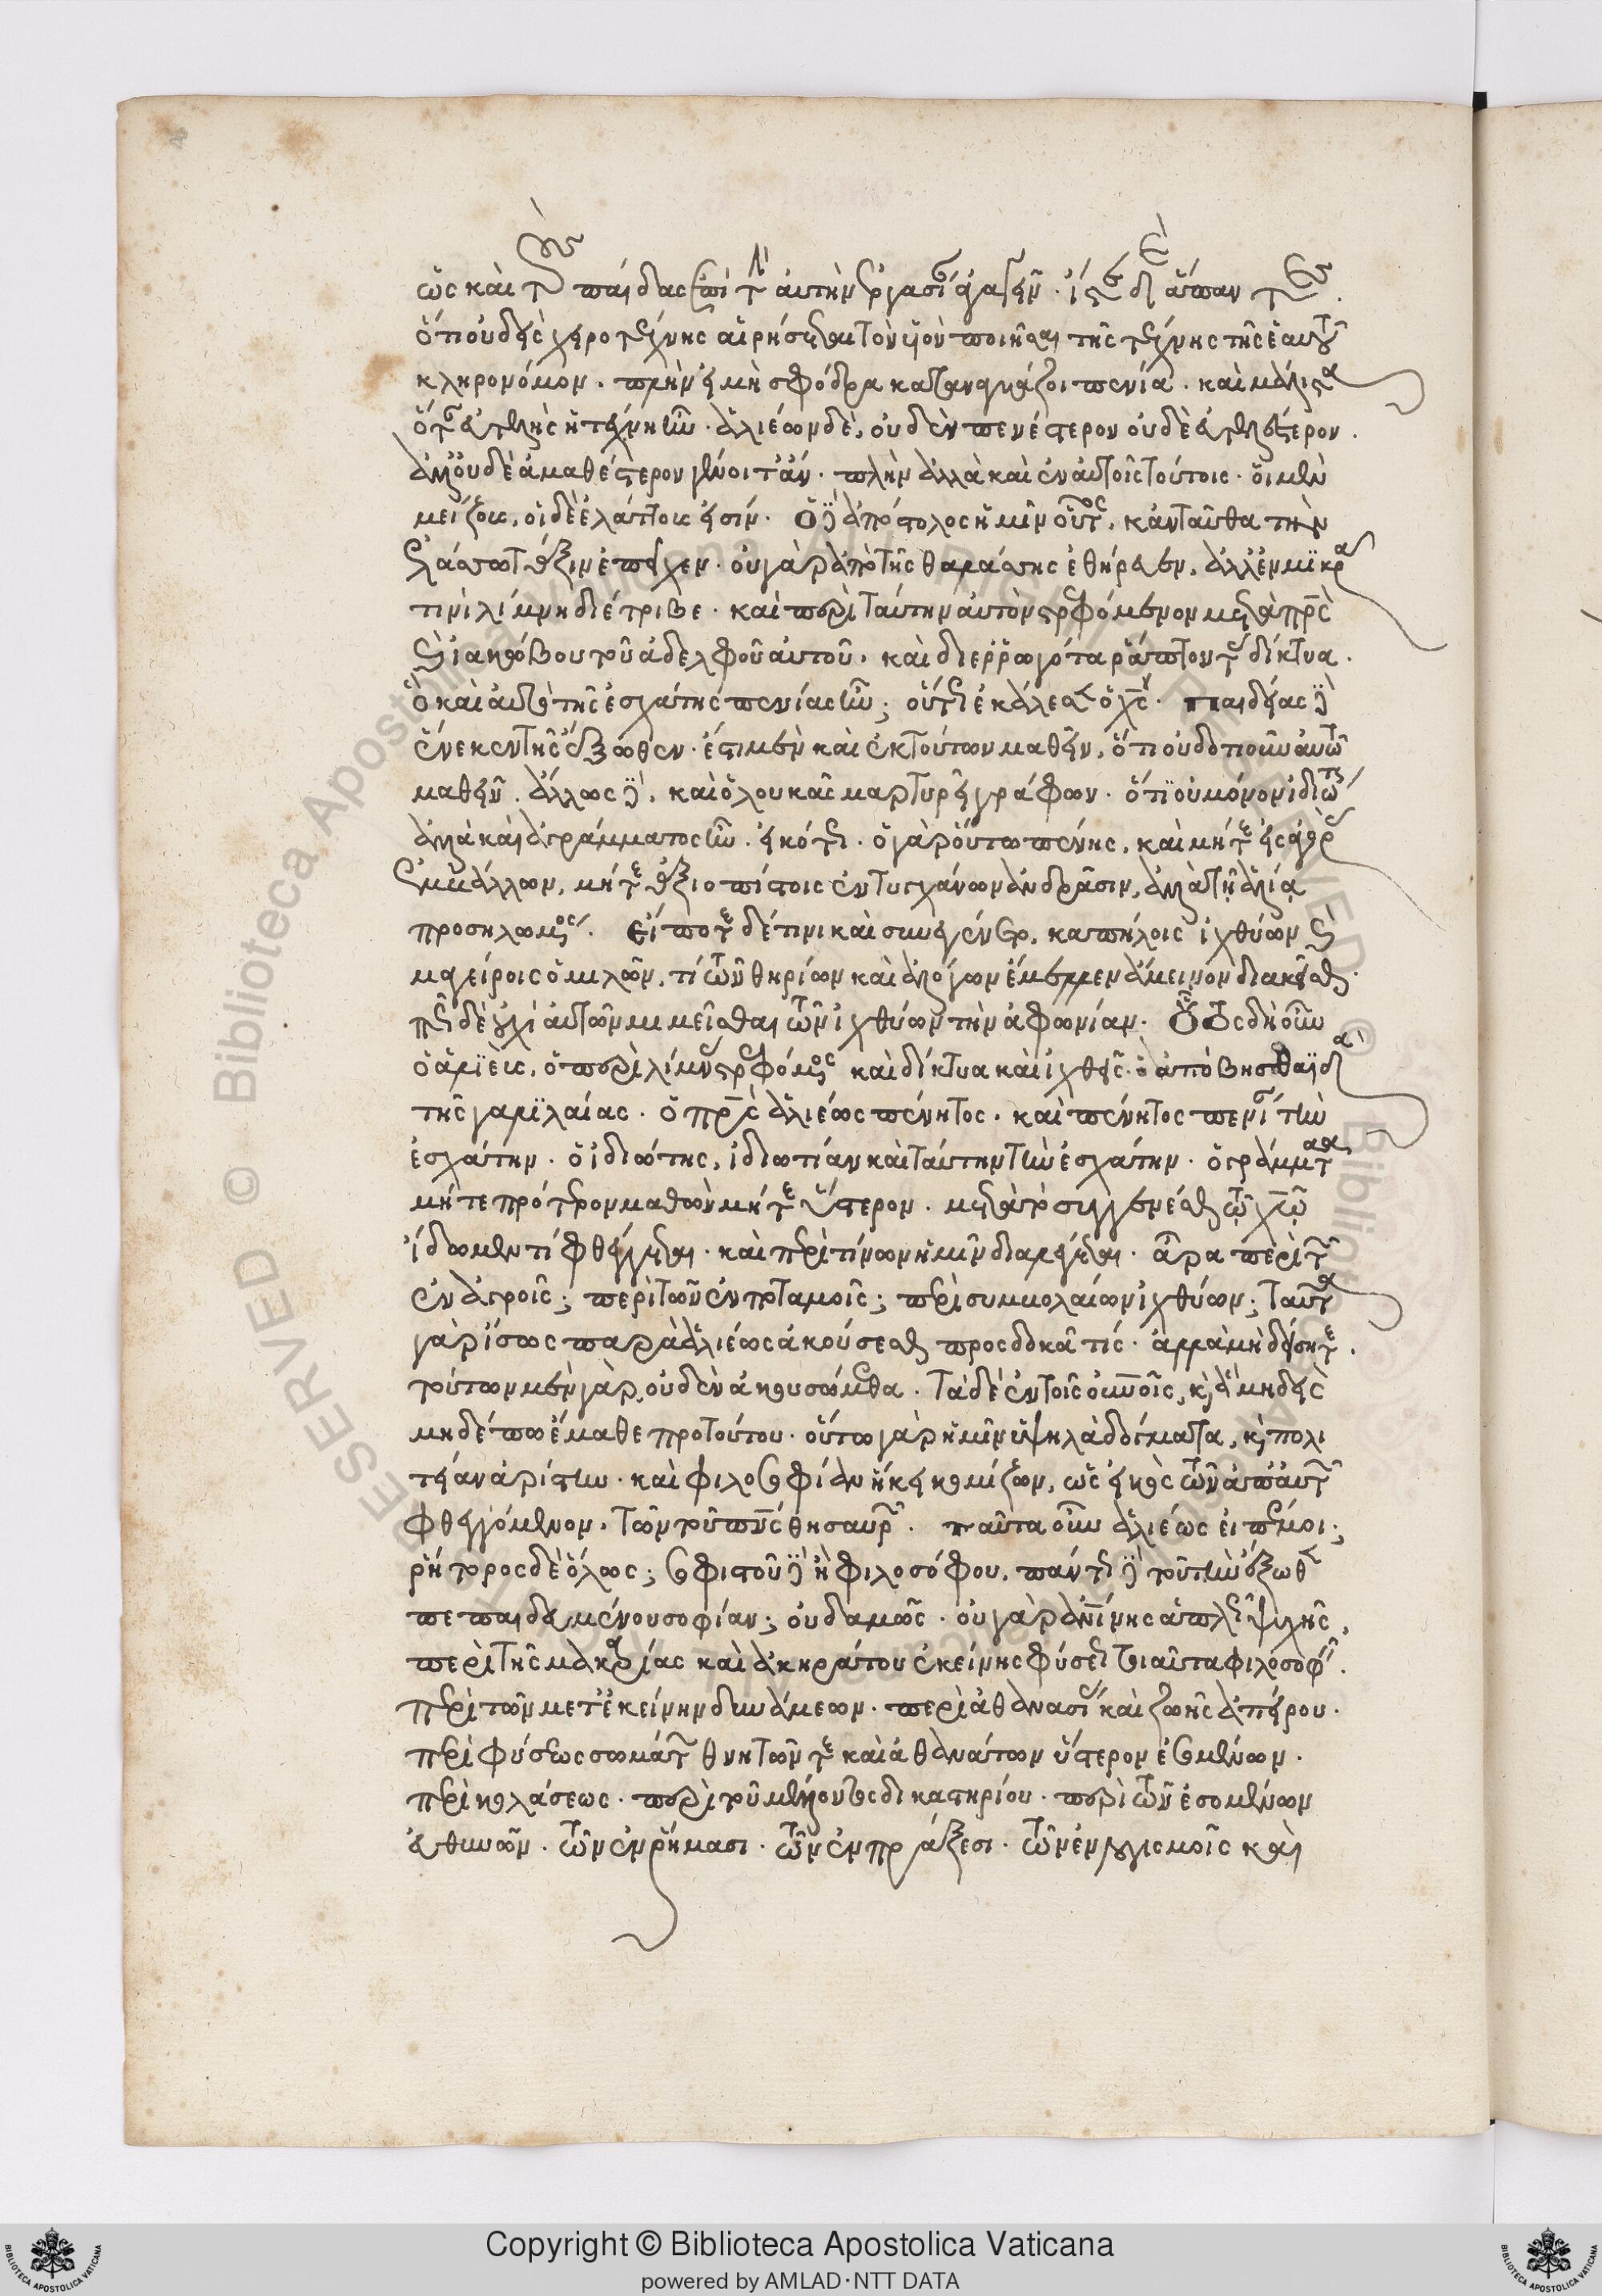 ὡς καὶ τοὺς παῖδας ἐπὶ τὴν αὐτὴν ἐργασίαν ἀγαγεῖν · ἴστε δὲ ἅπαντες .
ὅτι οὐδεὶς χειροτέχνης αἱρήσεται τὸν υἱὸν ποιῆσαι τῆς τέχνης τῆς ἑαυτοῦ
κληρονόμον . πλὴν εἰ μὴ σφόδρα καταναγκάζοι πενία . καὶ μάλιστα
ὅταν εὐτελὴς ἡ τέχνη ἦν . ἁλιέων δὲ, οὐδὲν πενέστερον οὐδὲ εὐτελέστερον .
ἀλλ' οὐδὲ ἀμαθέστερον γένοιτ' ἄν . πλὴν ἀλλὰ καὶ ἐν αὐτοῖς τούτοις . οἱ μὲν
μείζους, οἱ δὲ ἐλάττους εἰσίν . ὁ δὲ ἀπόστολος ἡμῖν οὗτος, κἀνταῦθα τὴν
ἐλάττω τάξιν ἐπεῖχεν . οὐ γὰρ ἀπὸ τῆς θαλάσσης ἐθήρευεν, ἀλλ' ἐν μικρᾷ
τινὶ λίμνῃ διέτριβε . καὶ περὶ ταύτην αὐτὸν στρεφόμενον μετὰ πρς
καὶ ἰακώβου τοῦ ἀδελφοῦ αὐτοῦ . καὶ διερρωγότα ῥάπτοντα δίκτυα .
ὃ καὶ αὐτὸ τῆς ἐσχάτης πενίας ἦν ; οὕτως ἐκάλεσεν ὁ χς . παιδείας δὲ
ἕνεκεν τῆς ἔξωθεν . ἔστι μὲν καὶ ἐκ τούτων μαθεῖν, ὅτι οὐδοτιοῦν αὐτῷ
μαθεῖν . ἄλλως δὲ, καὶ ὁ λουκᾶς μαρτυρεῖ γράφων . ὅτι οὐ μόνον ἰδιώτης
ἀλλὰ καὶ ἀγράμματος ἦν . εἰκότως . ὁ γὰρ οὕτω πένης, καὶ μήτε εἰς ἀγορὰς
ἐμβάλλων, μήτε ἀξιοπίστοις ἐντυγχάνων ἀνδράσιν, ἀλλὰ τῇ ἁλίᾳ
προσηλωμένος . εἴποτε δέ τινι καὶ συγγένοιτο, καπήλοις ἰχθύων καὶ
μαγείροις ὁμιλῶν, τί τῶν θηρίων καὶ ἀλόγων ἔμελλεν ἄμεινον διακεῖσθαι
πῶς δὲ οὐχὶ αὐτῶν μιμεῖσθαι τῶν ἰχθύων τὴν ἀφωνίαν . οὗτος δὴ οὖν
ὁ ἁλιεὺς, ὁ περὶ λίμνας στρεφόμενος καὶ δίκτυα καὶ ἰχθῦς . ὁ ἀπὸ βηθσαϊδὰ
τῆς γαλιλαίας . ὁ πρς ἁλιέως πένητος . καὶ πένητος πενίαν τὴν
ἐσχάτην . ὁ ἰδιώτης, ἰδιωτίαν καὶ ταύτην τὴν ἐσχάτην . ὁ γράμματα
μήτε πρότερον μαθὼν μήτε ὕστερον . μετὰ τὸ συγγενέσθαι τῷ χῷ
ἴδωμεν τί φθέγγεται . καὶ περὶ τίνων ἡμῖν διαλέγεται . ἆρα περὶ τῶν
ἐν ἀγροῖς ; περὶ τῶν ἐν ποταμοῖς ; περὶ συμβολαίων ἰχθύων ; ταῦτα
γὰρ ἴσως παρὰ ἁλιέως ἀκούσεσθαι προσδοκᾷ τίς . ἀλλὰ μὴ δείσητε .
τούτων μὲν γὰρ, οὐδὲν ἀκουσόμεθα . τὰ δὲ ἐν τοῖς οὐνοῖς, καὶ ἃ μηδεὶς
μηδέπω ἔμαθε πρὸ τούτου . οὕτω γὰρ ἡμῖν ὑψηλὰ δόγματα, καὶ πολι
τείαν ἀρίστην . καὶ φιλοσοφίαν ἥκει κομίζων, ὡς εἰκὸς τὸν ἀπ' αὐτῶν
φθεγγόμενον, τῶν τοῦ πνς θησαυρῶν . ταῦτα οὖν ἁλιέως εἰπέ μοι ;
ῥήτορος δὲ ὅλως ; σοφιστοῦ δὲ ἢ φιλοσόφου, παντὸς δὲ τοῦ τὴν ἔξωθεν
πεπαιδευμένου σοφίαν ; οὐδαμῶς . οὐ γὰρ ἀνίνης ἁπλῶς ψυχῆς,
περὶ τῆς μακαρίας καὶ ἀκηράτου ἐκείνης φύσεως τοιαῦτα φιλοσοφεῖν .
περὶ τῶν μετ' ἐκείνην δυνάμεων . περὶ ἀθανασίας καὶ ζωῆς ἀπείρου .
περὶ φύσεως σωμάτων θνητῶν τε καὶ ἀθανάτων ὕστερον ἐσομένων .
περὶ κολάσεως . περὶ τοῦ μέλλοντος δικαστηρίου . περὶ τῶν ἐσομένων
εὐθυνῶν . τῶν ἐν ῥήμασι . τῶν ἐν πράξεσι . τῶν ἐν λογισμοῖς καὶ
Copyright © Biblioteca Apostolica Vaticana
powered by AMLAD·NTT DATA